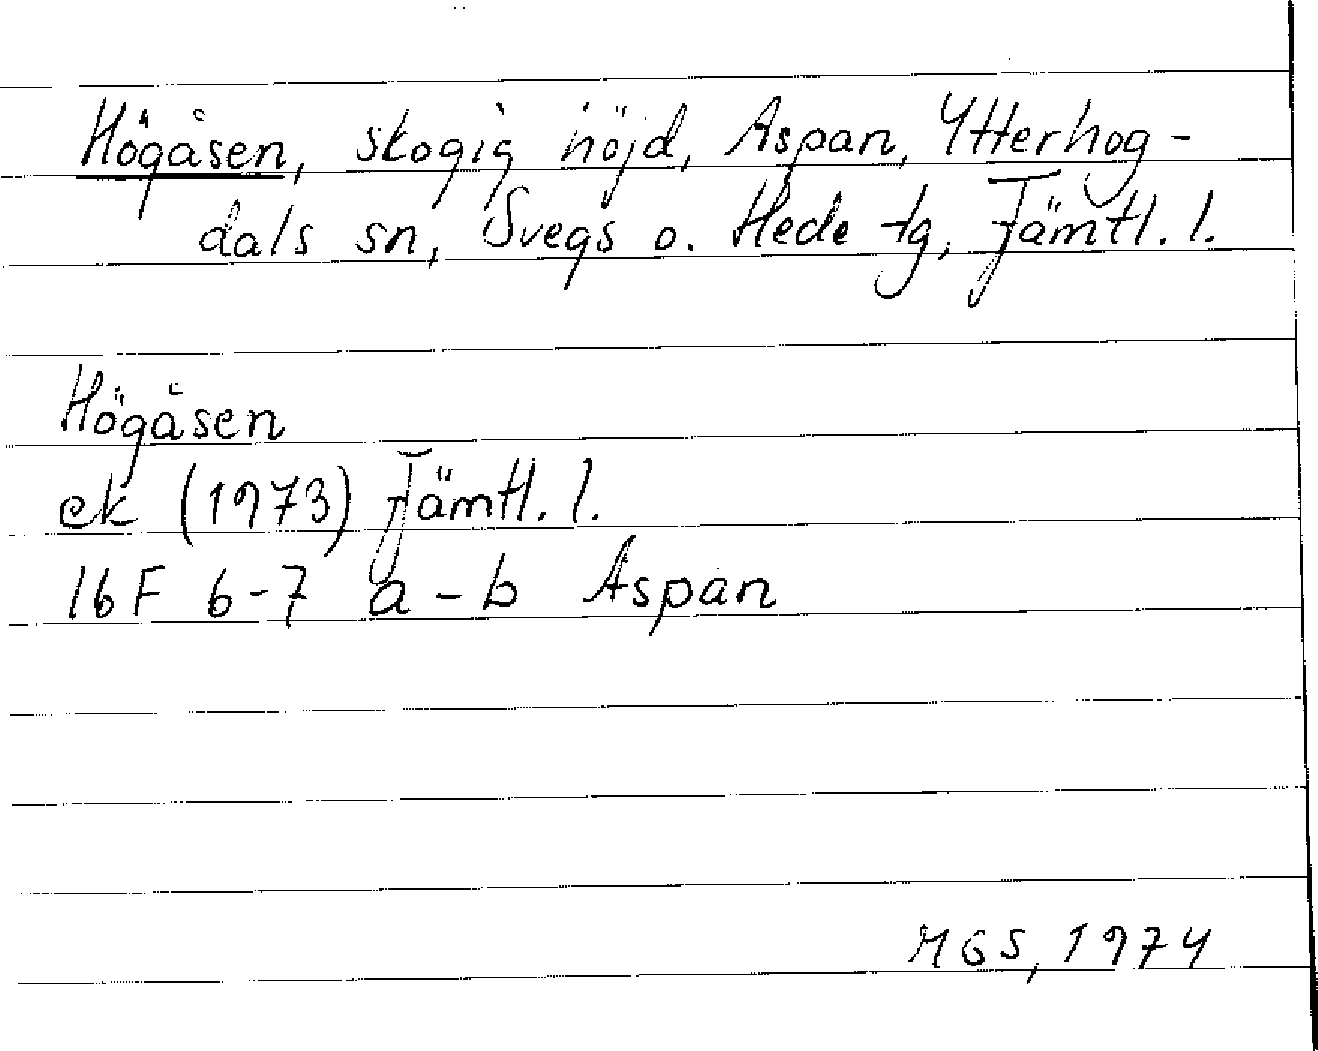 Högåsen, skogig höjd, Aspan, Ytterhog-
dals sn, Svegs o. Hede tg, Jämtl. l.
Högåsen
ek (1973) Jämtl. l.
16F 6-7 a-b Aspan
MGS, 1974